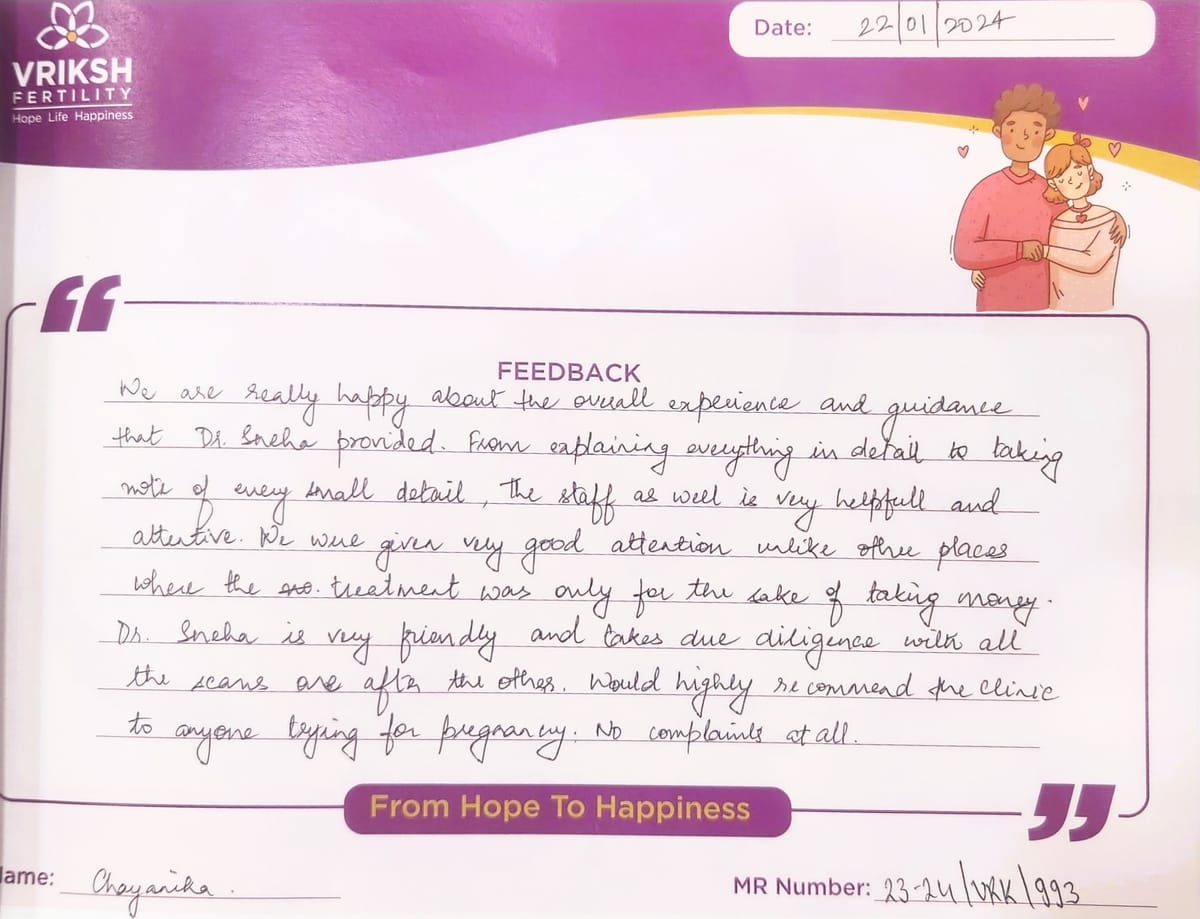 VRIKSH
FERTILITY
Hope Life Happiness
Date: 22/01/2024
FEEDBACK
We are really happy about the overall experience and guidance
that Dr. Sneha provided. From explaining everything in detail to taking
note of every small detail, The staff as well is very helpfull and
attentive. We were given very good attention unlike other places
where the treatment was only for the sake of taking money.
Dr. Sneha is very friendly and takes due diligence with all
the scans one after the other. Would highly recommend the clinic
to anyone trying for pregnancy. No complaints at all.
From Hope To Happiness
ame: Chayanika.
MR Number: 23-24/VRK/993